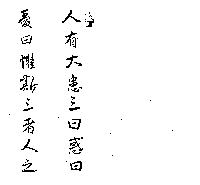 人有大患三曰惑曰
憂曰惟斯三者人之